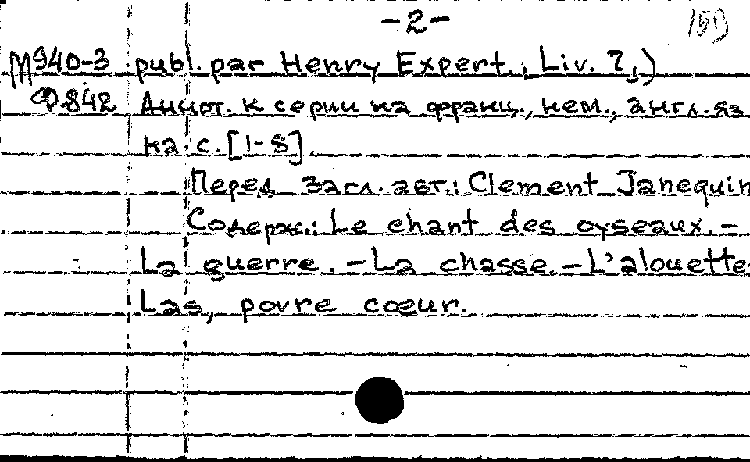 -2-
М940-3 publ. par Henry Expert., Liv. 7,)
Ф.842 Аннот. к серии на франц., нем., англ. яз
ка. с. [1-8].
Перед загл. авт.: Clement Janequin
Содерж.: Le chant des oyseaux. -
La guerre. - La chasse. - L'alouette
Las, povre cœur.